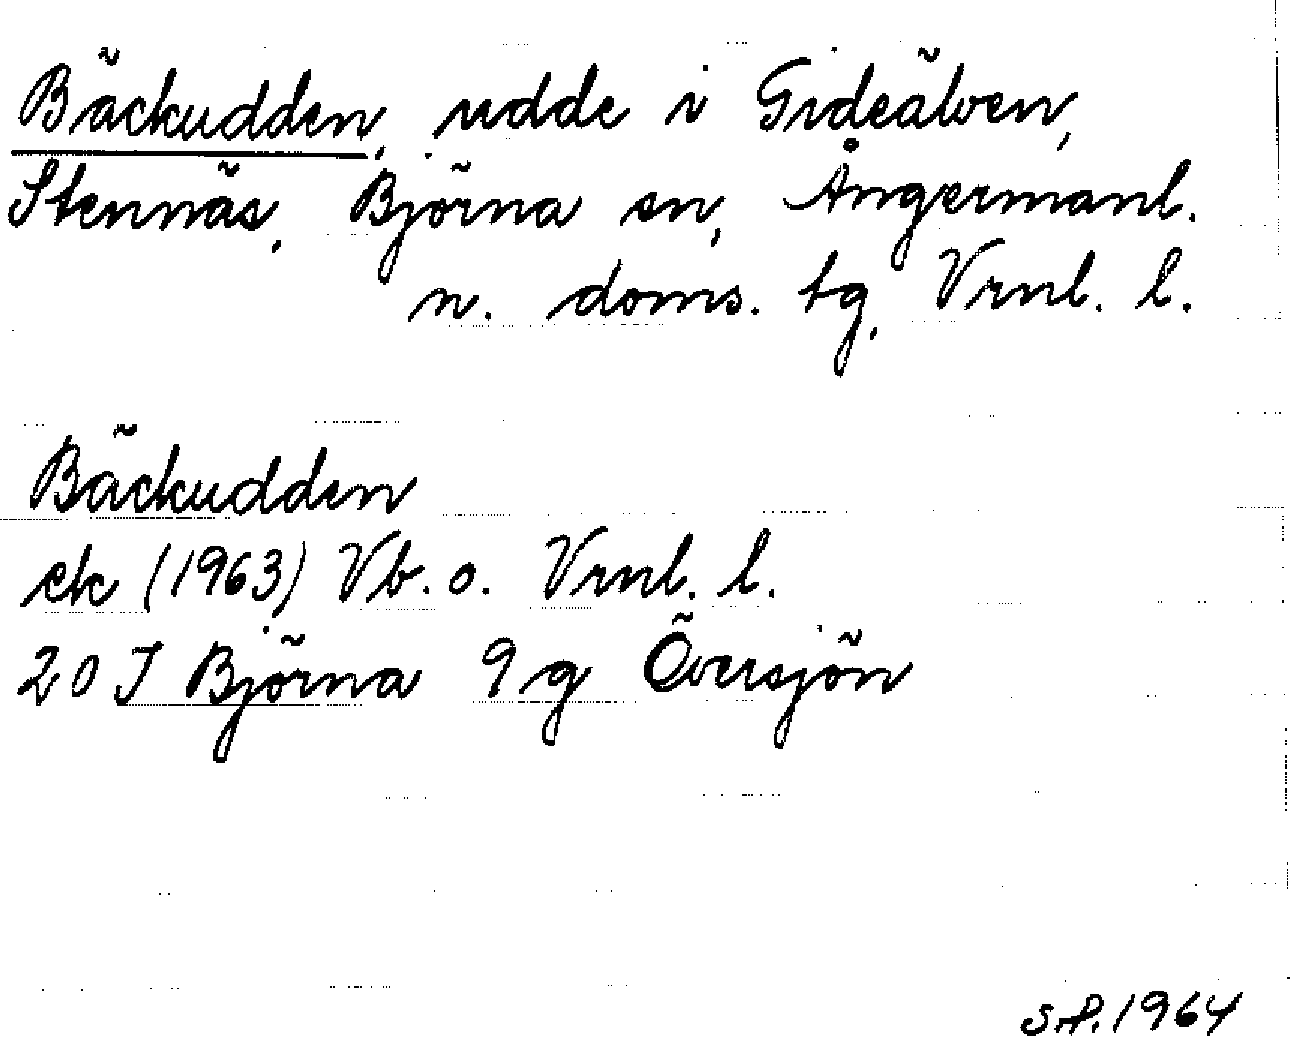 Bäckudden, udde i Gideälven,
Stennäs, Björna sn, Ångermanl.
n. doms. tg, Vrnl. l.
Bäckudden
ek (1963) Vb. o. Vrnl. l.
20 J Björna 9g Översjön
S.P. 1964